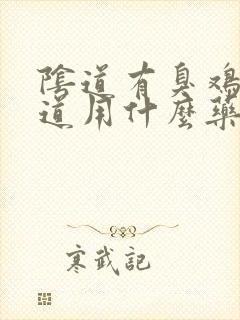 陰道有臭鸡
道用什麼藥
寒武記